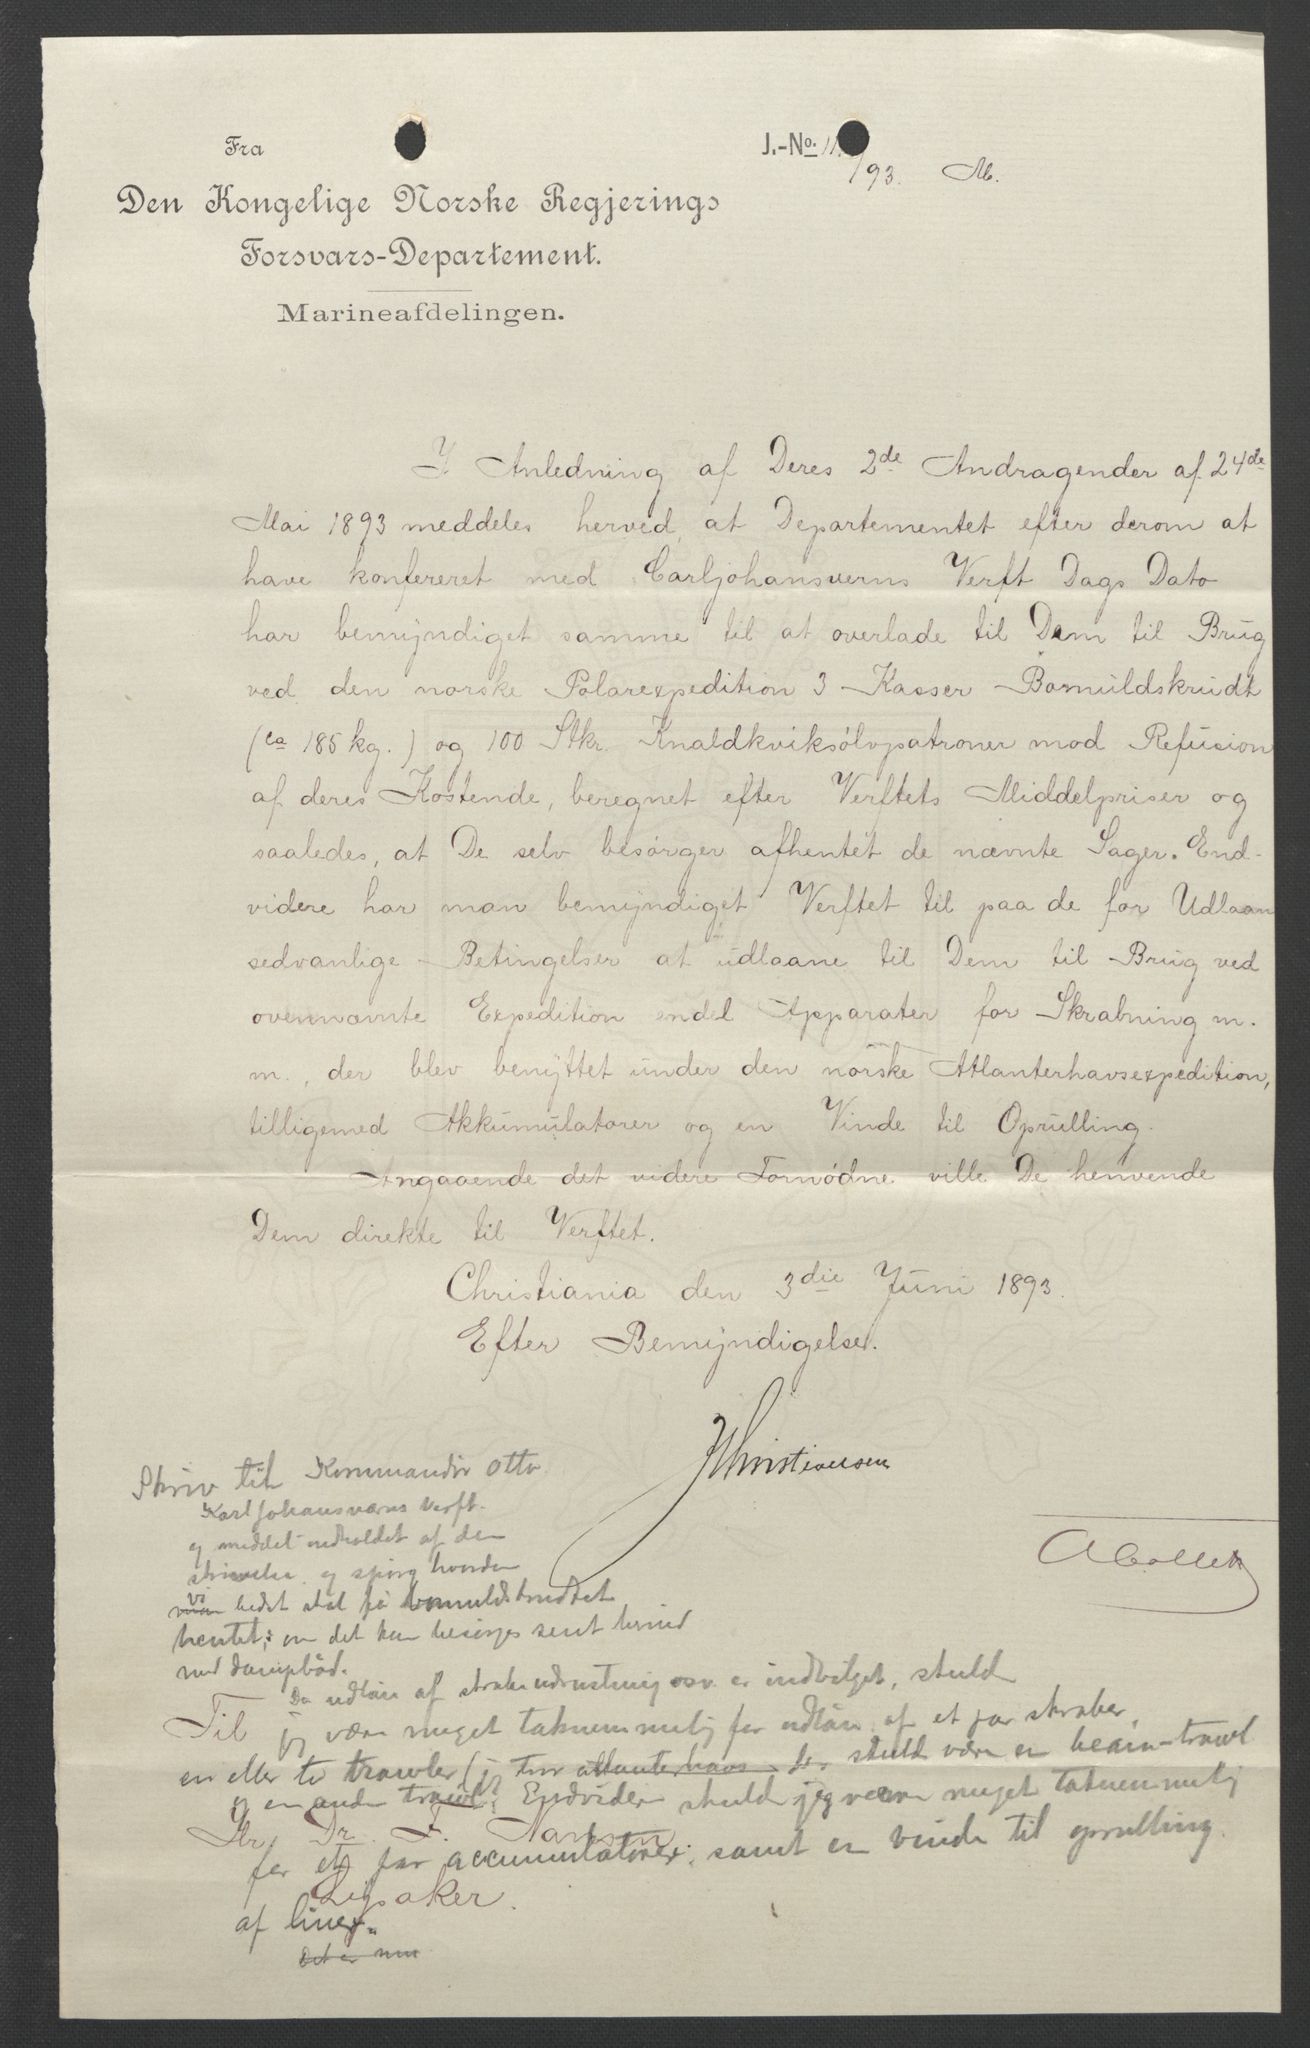 Fra
Den Kongelige Norske Regjerings
Forsvars-Departement.
Marineafdelingen.
J.-No. 11
/93. M.
I Anledning af Deres 2de Andragender af 24de
Mai 1893 meddeles herved, at Departementet efter derom at
have konfereret med Carljohansverns Verft Dags Dato
har bemyndiget samme til at overlade til Dem til Brug
ved den norske Polarexpedition 3 Kasser Bomuldskrudt
(ca 185 kg.) og 100 Stkr. Knaldkviksølvpatroner mod Refusion
af deres Kostende, beregnet efter Verftets Middelpriser og
saaledes, at De selv besørger afhentet de nævnte Sager. End-
videre har man bemyndiget Verftet til paa de for Udlaan
sedvanlige Betingelser at udlaane til Dem til Brug ved
ovennævnte Expedition endel Apparater for Skrabning m.
m., der blev benyttet under den norske Atlanterhavsexpedition,
tilligemed Akkumulatorer og en Vinde til Oprulling.
Angaaende det videre Fornødne ville De henvende
Dem direkte til Verftet.
Christiania den 3die Juni 1893.
Efter Bemyndigelse.
JChristiansen
ACollett
Skriv til Kommandør Otto
Karljohansværns Verft.
og meddel indholdet af den
skrivelse og spørg hvordan
vi bedst skal få bomuldskrudtet
hentet; om det kan besørges sent herind
med dampbåd.
Da udlån af skrabeudrustning osv. er indvilget, skuld
jeg være meget taknemmelig for udlån af et par skraber,
en eller to trawler (j tror atlanterhavs skuld være en beam-trawl
og en anden trawl). Endvider skuld jeg være meget taknemmelig
for et par accumulatorer, samt en vinde til oprulling
af liner.
Det er
Til
Hr. Dr. F. Nansen
Lysaker.